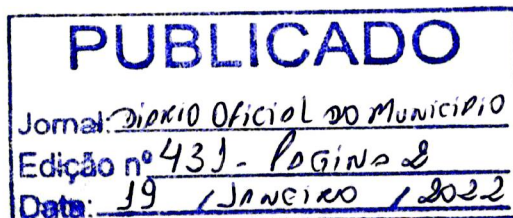 PUBLICADO
Jornal: Diário Oficial do Município
Edição nº 431 - Página 2
Data: 19 / Janeiro / 2022